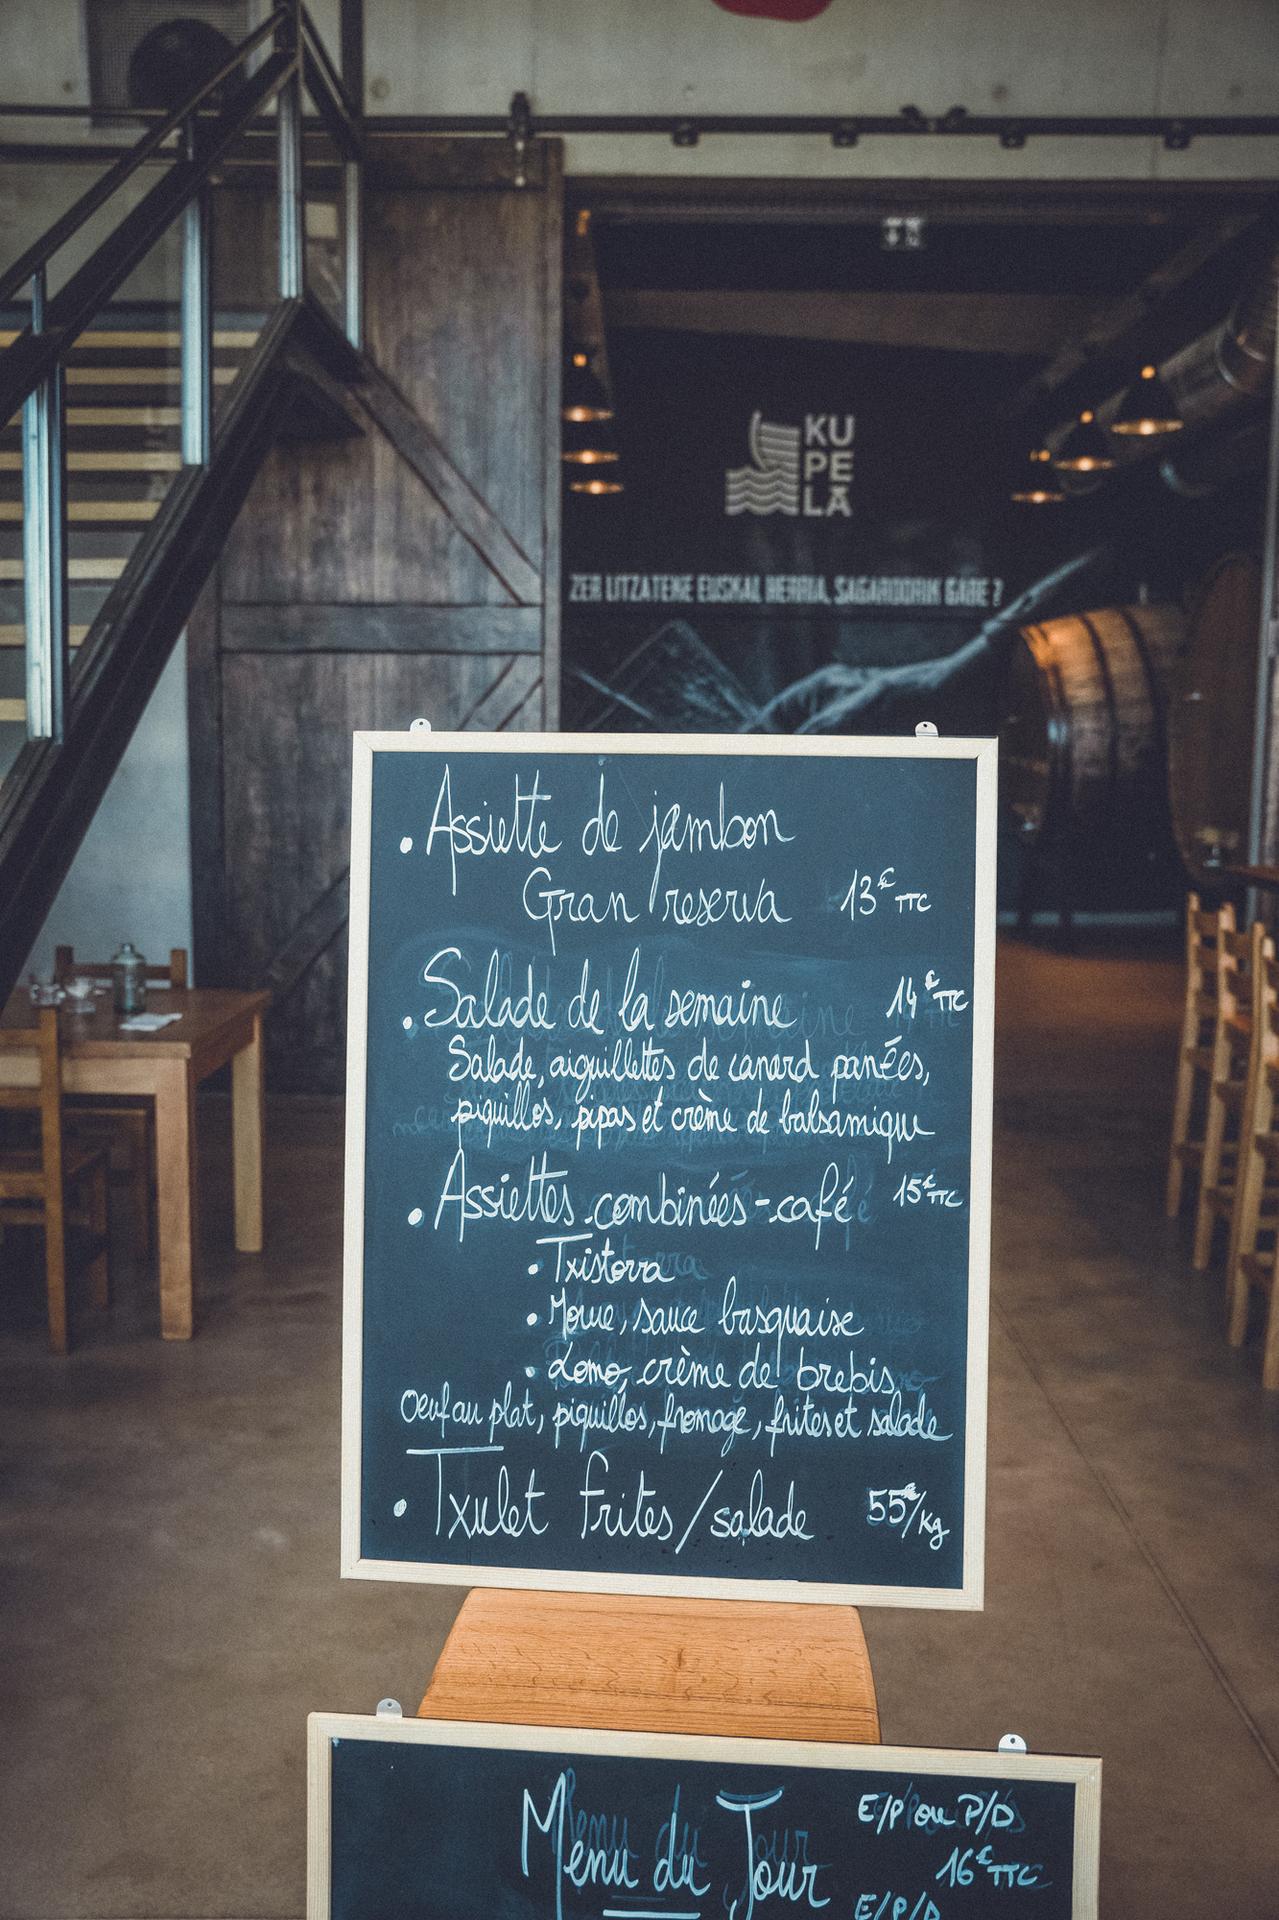 KU
PE
LA
ZER LITZATEKE EUSKAL HERRIA, SAGARDORIK GABE ?
• Assiette de jambon
Gran reserva 13€ TTC
• Salade de la semaine 14€ TTC
Salade, aiguillettes de canard panées,
piquillos, pipas et crème de balsamique
• Assiettes combinées - café 15€ TTC
• Txistorra
• Morue, sauce basquaise
• Lomo, crème de brebis
Oeuf au plat, piquillos, fromage, frites et salade
• Txulet frites/salade 55€/kg
Menu du Jour
E/P ou P/D
16€ TTC
E/P/D